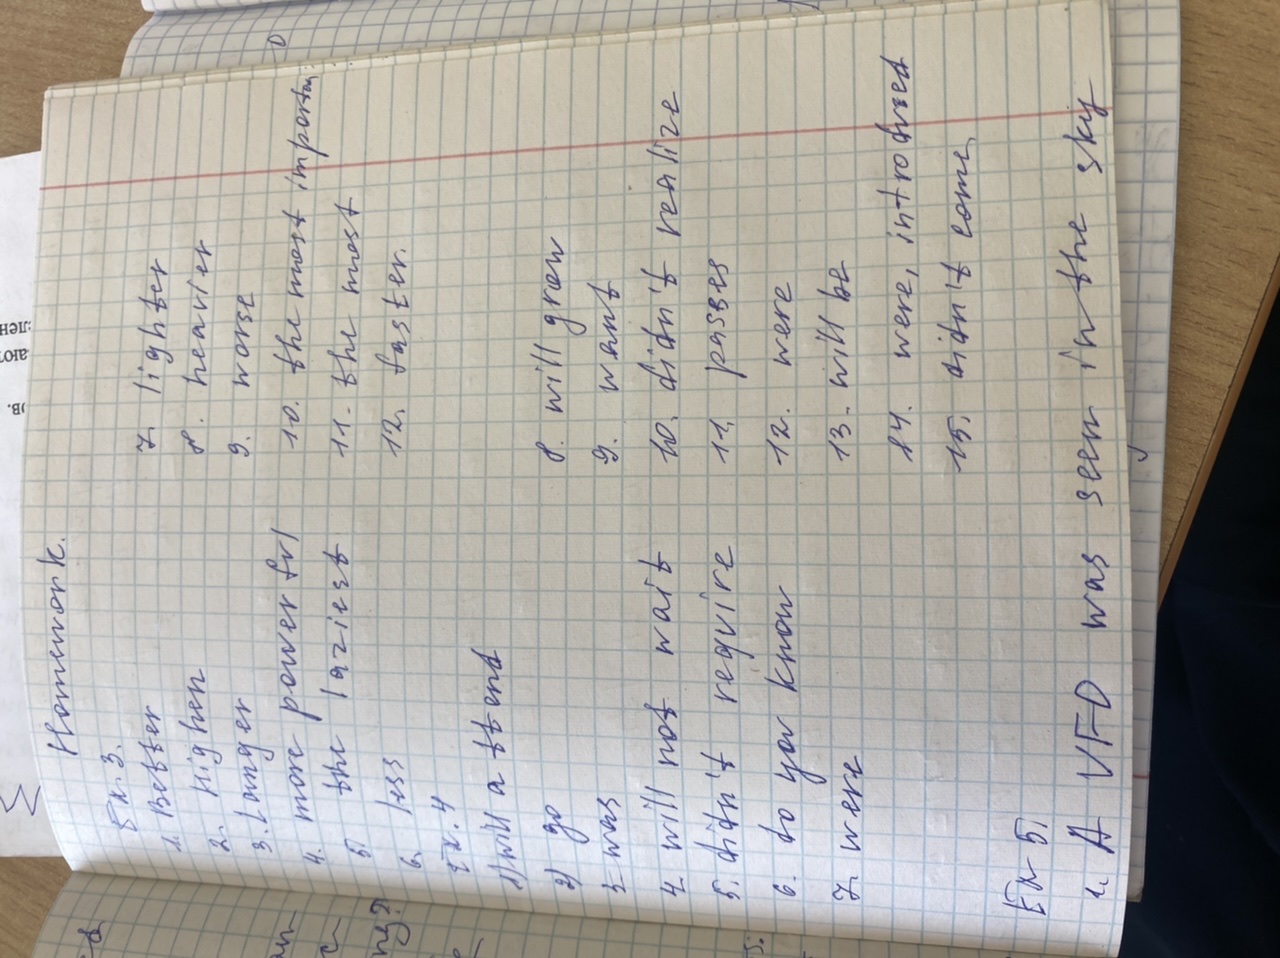 Homework.
Ex. 3.
1. Better
2. Higher
3. Langer
4. more powerful
5. the laziest
6. less
7. lighter
8. heavier
9. worse
10. the most importan
11. the most
12. faster.
Ex. 4
1) will attend
2) go
3. was
4. will not wait
5. didn't require
6. do you know
7. were
8. will grow
9. want
10. didn't realize
11. passes
12. were
13. will be
14. were, introduced
15. didn't come,
Ex 5.
1. A VFD was seen in the sky